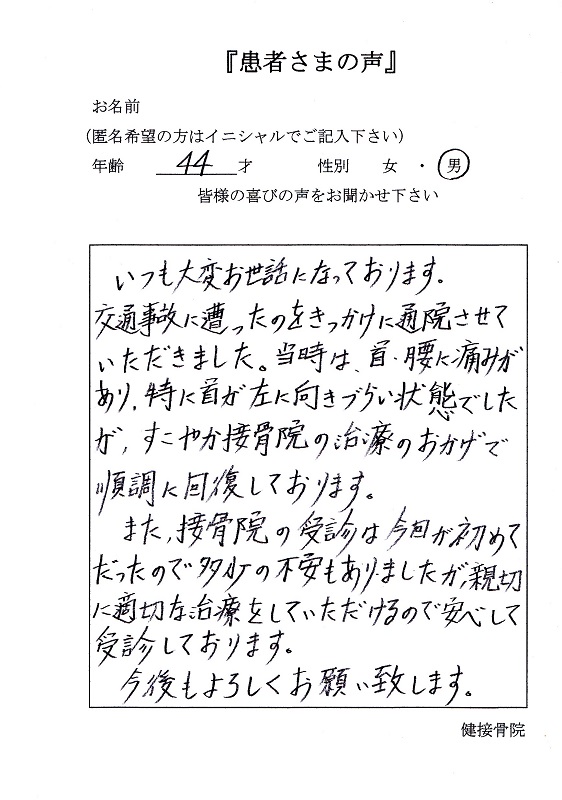 『患者さまの声』
お名前
(匿名希望の方はイニシャルでご記入下さい)
年齢 44才 性別 女 ・ 男
皆様の喜びの声をお聞かせ下さい
いつも大変お世話になっております。
交通事故に遭ったのをきっかけに通院させて
いただきました。当時は、首・腰に痛みが
あり、特に首が左に向きづらい状態でした
が、すこやか接骨院の治療のおかげで
順調に回復しております。
また、接骨院の受診は今回が初めて
だったので多少の不安もありましたが、親切
に適切な治療をしていただけるので安心して
受診しております。
今後もよろしくお願い致します。
健接骨院